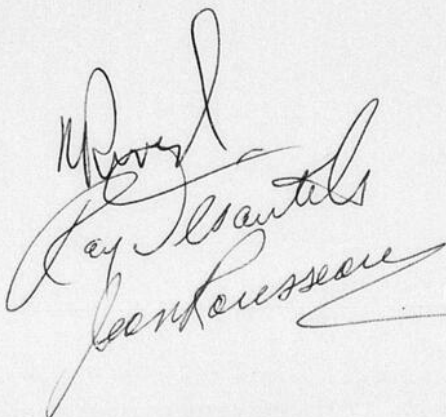 Ray Desautels
Jean Rousseau